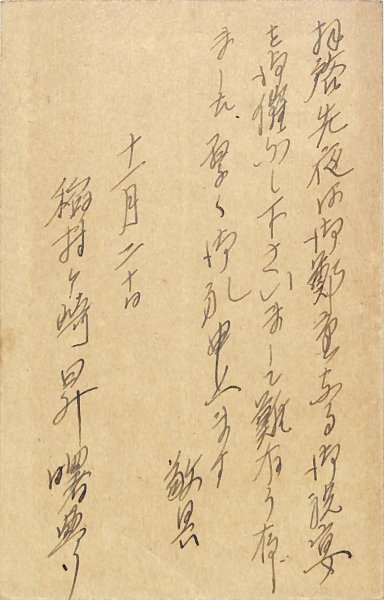 拝啓先夜は御鄭重なる御祝宴
を御催し下さいまして難有う存
ました、厚く御礼申上ます
敬具
十一月二十日
稲村ヶ崎 昇曙夢